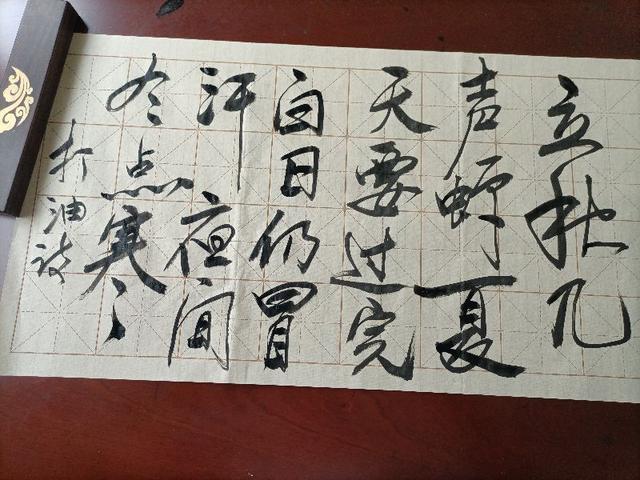 立秋几
声蝉夏
天要过完
白日仍冒
汗夜间
多点寒
打油诗